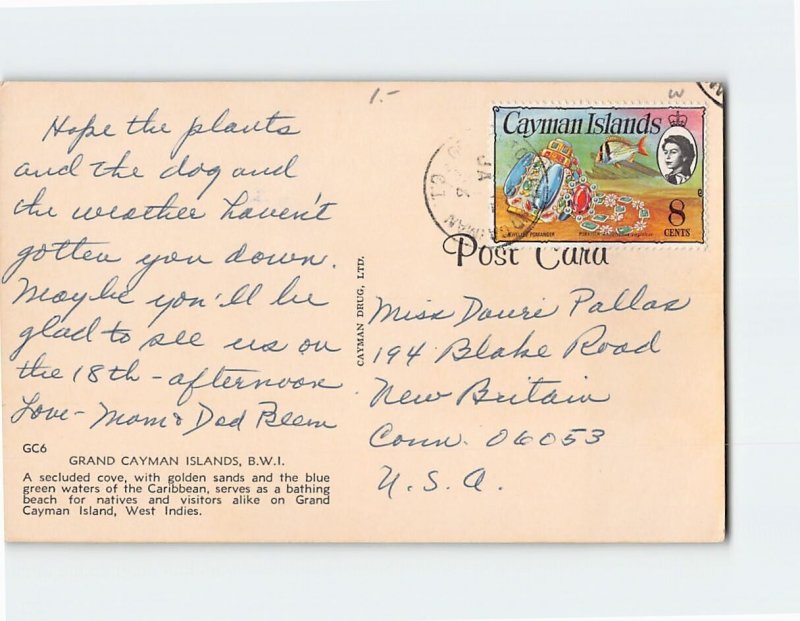 Hope the plants
and the dog and
the weather haven't
gotten you down.
Maybe you'll be
glad to see us on
the 18th - afternoon
Love - Mom & Dad Beem
GC6
GRAND CAYMAN ISLANDS, B.W.I.
A secluded cove, with golden sands and the blue
green waters of the Caribbean, serves as a bathing
beach for natives and visitors alike on Grand
Cayman Island, West Indies.
CAYMAN DRUG, LTD.
1.-
W
Cayman Islands
8
CENTS
JEWELLED POMANDER
PORKFISH
CAYMAN
JA
Post Card
Miss Douri Pallas
194 Blake Road
New Britain
Conn. 06053
U.S.A.